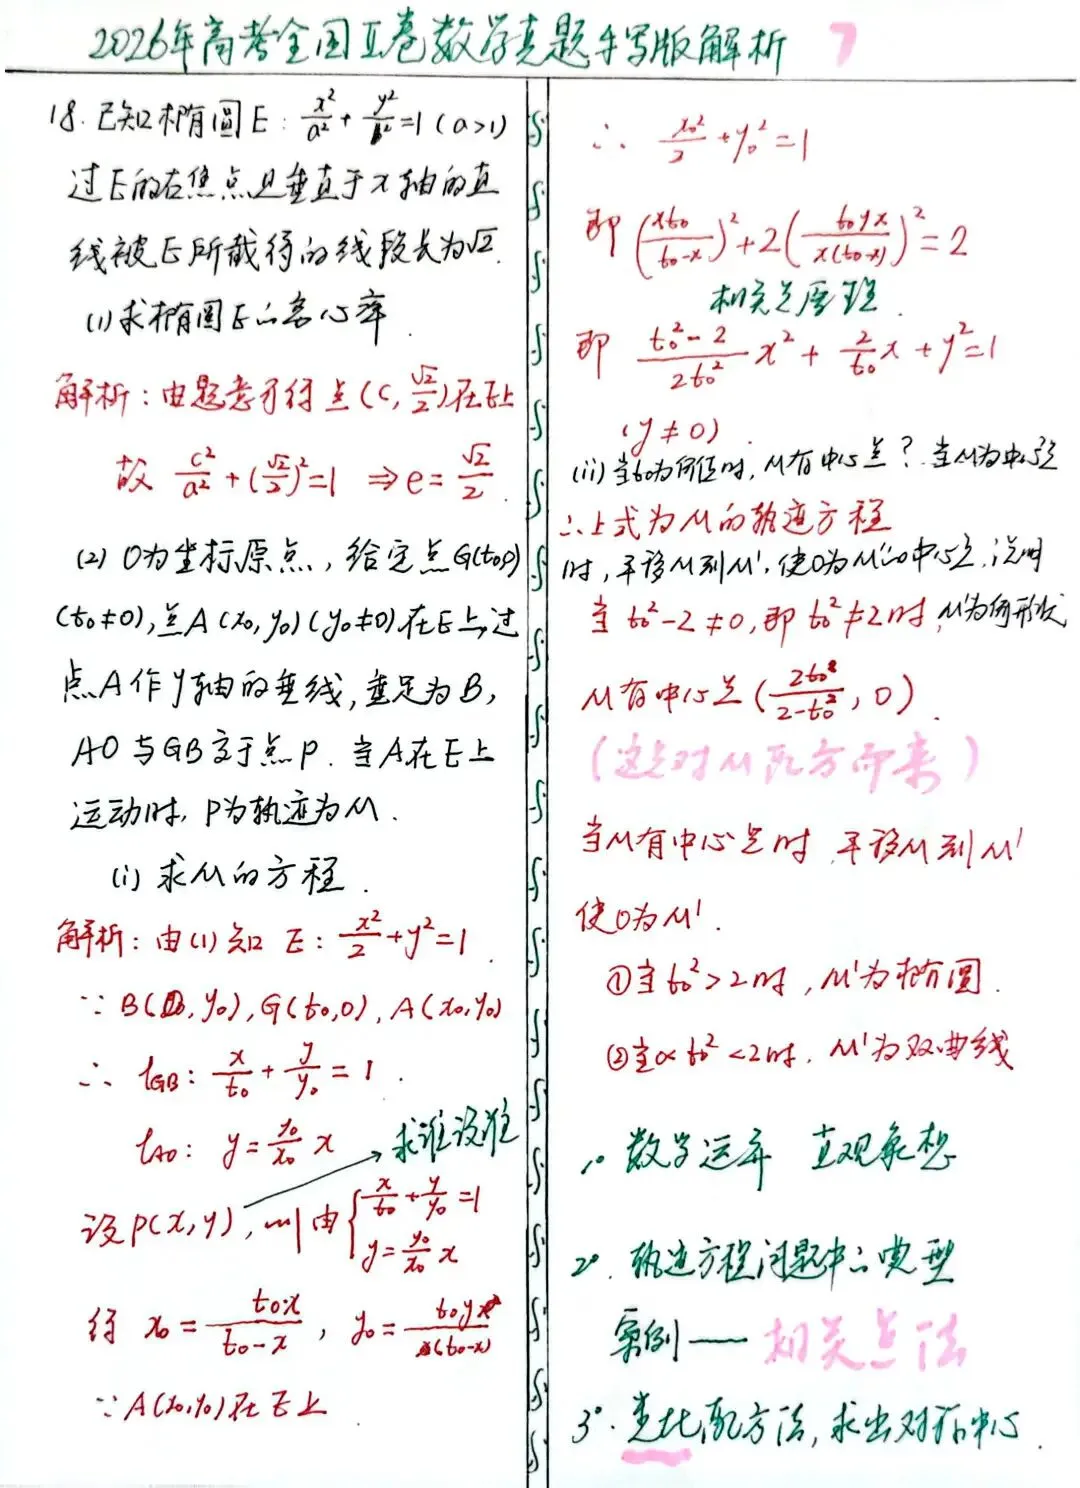 2026年高考全国II卷数学真题手写版解析 7
18. 已知椭圆E: x²/a² + y²/b² = 1 (a>1)
过E的右焦点且垂直于x轴的直
线被E所截得的线段长为√2.
(1)求椭圆E的离心率
解析:由题意可得点(c, √2/2)在E上
故 c²/a² + (√2/2)² = 1 ⇒ e = √2/2.
(2) O为坐标原点, 给定点G(t₀,0)
(t₀≠0), 点A(x₀,y₀)(y₀≠0)在E上,过
点A作y轴的垂线,垂足为B,
AO与GB交于点P. 当A在E上
运动时, P为轨迹为M.
(i) 求M的方程.
解析: 由(1)知 E: x²/2 + y² = 1.
∵ B(0, y₀), G(t₀,0), A(x₀,y₀)
∴ l_GB: x/t₀ + y/y₀ = 1.
l_AO: y = y₀/x₀ x
求谁设谁
设P(x,y), 则由 { x/t₀ + y/y₀ = 1
y = y₀/x₀ x
得 x₀ = t₀x/(t₀-x), y₀ = t₀yx/x(t₀-x)
∵ A(x₀,y₀)在E上
∴ x₀²/2 + y₀² = 1
即 (xt₀/(t₀-x))² + 2(t₀yx/x(t₀-x))² = 2
相关点原理.
即 (t₀²-2)/2t₀² x² + 2/t₀ x + y² = 1
(y≠0).
(ii) 当t₀为何值时, M有中心点? 当M为中心点
∴上式为M的轨迹方程
时, 平移M到M', 使O为M'的中心点, 说明
当 t₀²-2≠0, 即 t₀²≠2时, M'为何形状
M有中心点(2t₀/(2-t₀²), 0).
(这是对M配方而来)
当M有中心点时 平移M到M'
使O为M'.
①当t₀²>2时, M'为椭圆.
②当0<t₀²<2时, M'为双曲线
1° 数学运算 直观象想
2°. 轨迹方程问题中的典型
案例——相关点法
3°. 类比配方法, 求出对称中心.